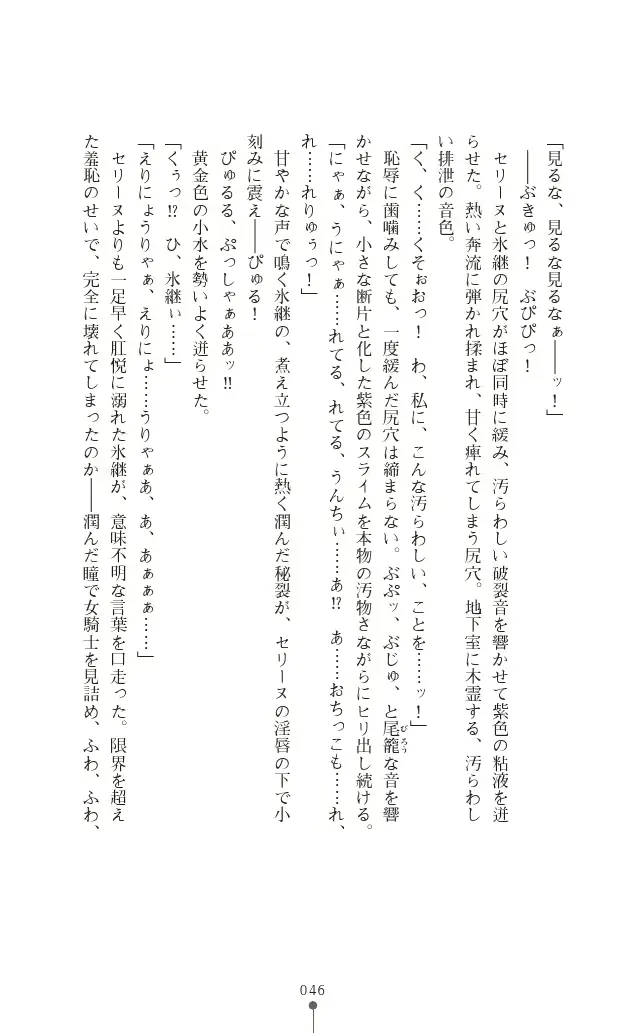 「見るな、見るな見るなぁ――ッ！」
――ぶきゅっ！　ぶぴぴっ！
セリーヌと氷継の尻穴がほぼ同時に緩み、汚らわしい破裂音を響かせて紫色の粘液を迸
らせた。熱い奔流に弾かれ揉まれ、甘く痺れてしまう尻穴。地下室に木霊する、汚らわし
い排泄の音色。
「く、く……くそぉおっ！　わ、私に、こんな汚らわしい、ことを……ッ！」
恥辱に歯噛みしても、一度緩んだ尻穴は締まらない。ぶぷッ、ぶじゅ、と尾籠な音を響
びろう
かせながら、小さな断片と化した紫色のスライムを本物の汚物さながらにヒリ出し続ける。
「にゃぁ、うにゃぁ……れてる、れてる、うんちぃ……あ⁉　ぁ……おちっこも……れ、
れ……れりゅぅっ！」
甘やかな声で鳴く氷継の、煮え立つように熱く潤んだ秘裂が、セリーヌの淫唇の下で小
刻みに震え――ぴゅる！
ぴゅるる、ぷっしゃぁああッ‼
黄金色の小水を勢いよく迸らせた。
「くぅっ⁉　ひ、氷継ぃ……」
「えりにょうりゃぁ、えりにょ……うりゃぁあ、あ、あぁぁぁ……」
セリーヌよりも一足早く肛悦に溺れた氷継が、意味不明な言葉を口走った。限界を超え
た羞恥のせいで、完全に壊れてしまったのか――潤んだ瞳で女騎士を見詰め、ふわ、ふわ、
046